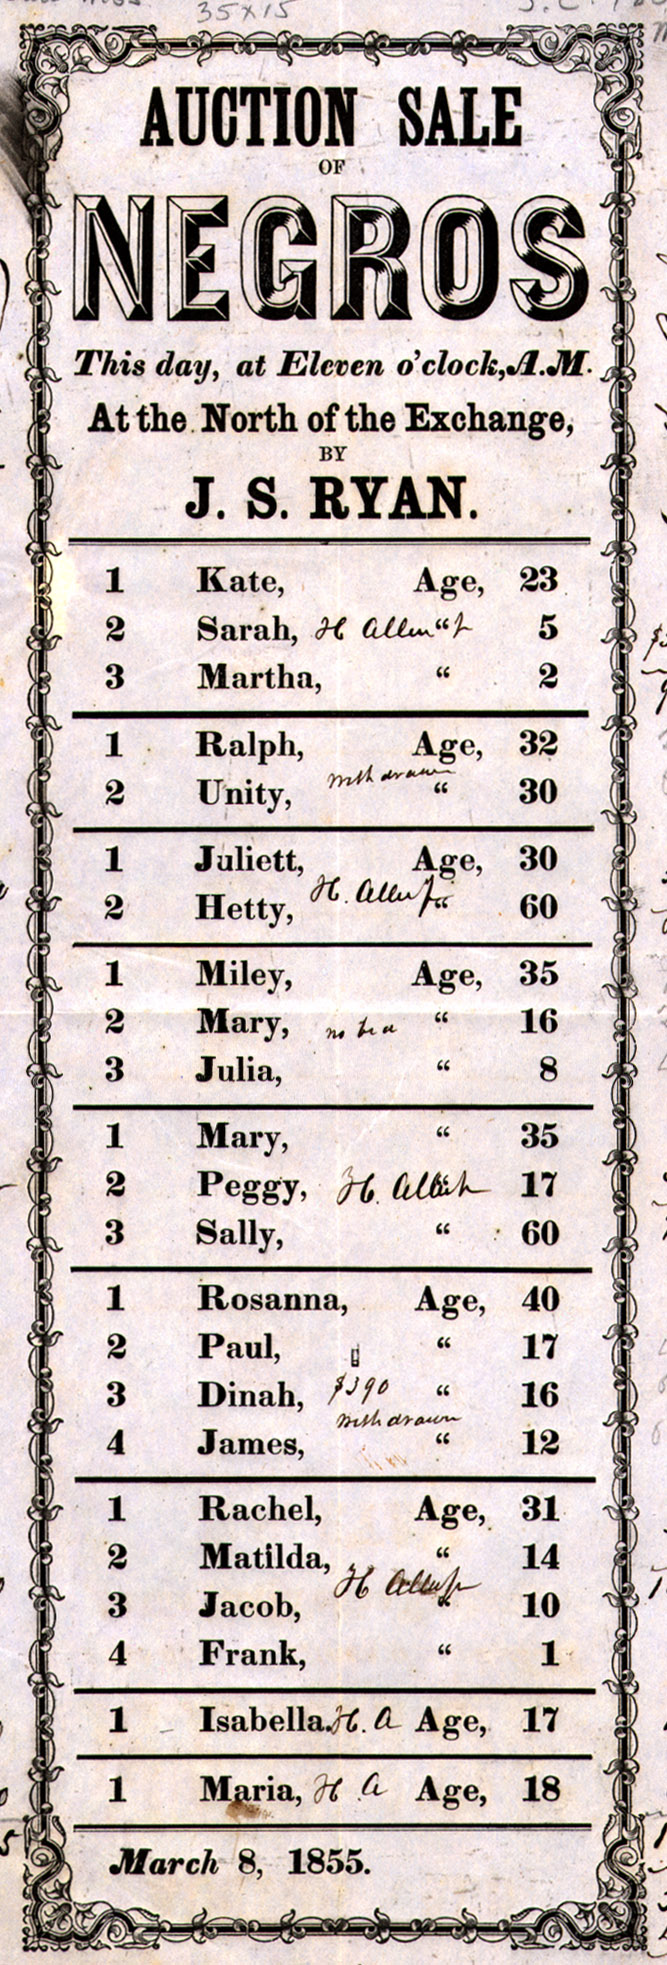 35x15
AUCTION SALE
OF
NEGROS
This day, at Eleven o'clock, A.M.
At the North of the Exchange,
BY
J. S. RYAN.
1 Kate, Age, 23
2 Sarah, H Allen " 5
3 Martha, " 2
1 Ralph, Age, 32
withdrawn
2 Unity, " 30
1 Juliett, Age, 30
H.
2 Hetty, " 60
1 Miley, Age, 35
2 Mary, no " 16
3 Julia, " 8
1 Mary, " 35
2 Peggy, H. " 17
3 Sally, " 60
1 Rosanna, Age, 40
2 Paul, " 17
3 Dinah, $390 " 16
withdrawn
4 James, " 12
1 Rachel, Age, 31
2 Matilda, " 14
H
3 Jacob, " 10
4 Frank, " 1
1 Isabella. H. A Age, 17
1 Maria, H A Age, 18
March 8, 1855.